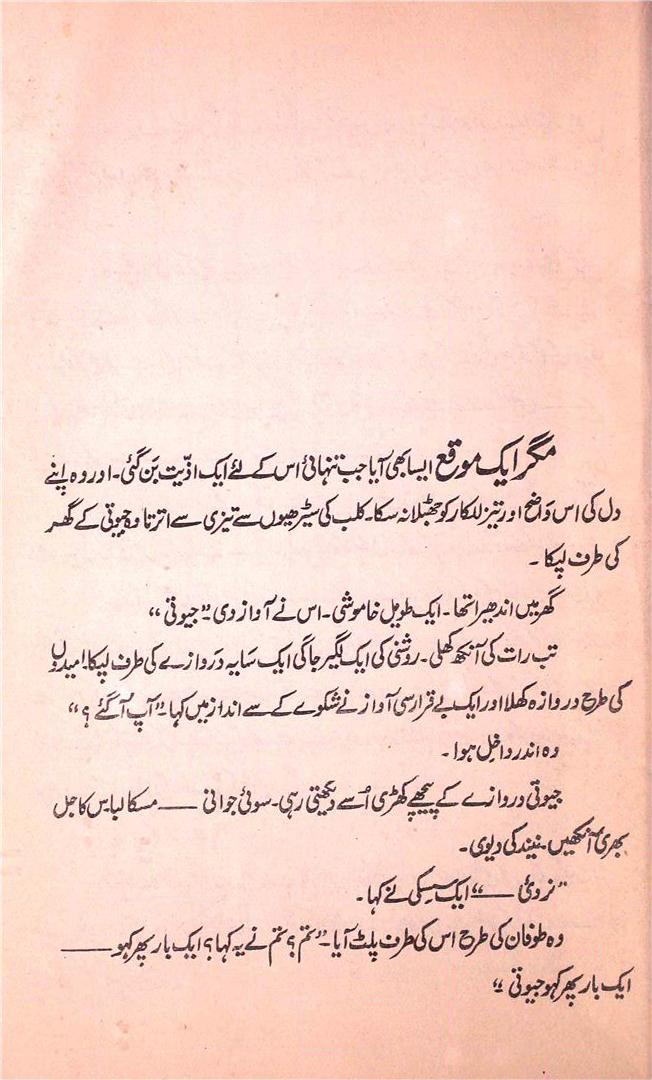 مگر ایک موقع ایسا بھی آیا جب تنہائی اس کے لئے ایک اذیّت بَن گئی۔ اور وہ اپنے
دل کی اس وَاضح اور تیز للکار کو جھٹلا نہ سکا۔ کلب کی سیڑھیوں سے تیزی سے اترتا وہ جیوتی کے گھر
کی طرف لپکا۔
گھر میں اندھیرا تھا۔ ایک طویل خاموشی۔ اس نے آواز دی۔ ”جیوتی“
تب رات کی آنکھ کھلی۔ روشنی کی ایک لکیر جاگی ایک سَایہ دَروازے کی طرف لپکا! امیدوں
کی طرح دروازہ کھلا اور ایک بے قرار سی آواز نے شکوے کے سے انداز میں کہا۔ ”آپ آ گئے ؟“
وہ اندر داخل ہوا۔
جیوتی دروازے کے پیچھے کھڑی اُسے دیکھتی رہی۔ سوئی جوانی —— مسکا لباس کاجل
بھری آنکھیں۔ نیند کی دیوی۔
”نردئ ——“ ایک سسکی نے کہا۔
وہ طوفان کی طرح اس کی طرف پلٹ آیا۔ ”تم ؟ تم نے یہ کہا ؟ ایک بار پھر کہو ——
ایک بار پھر کہو جیوتی۔“